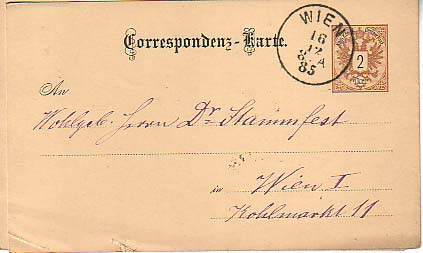 Correspondenz-Karte.
WIEN
16
12
8.A
85
2
An
Wohlgeb. Herrn Dr Stammfest
in Wien I
Kohlmarkt 11